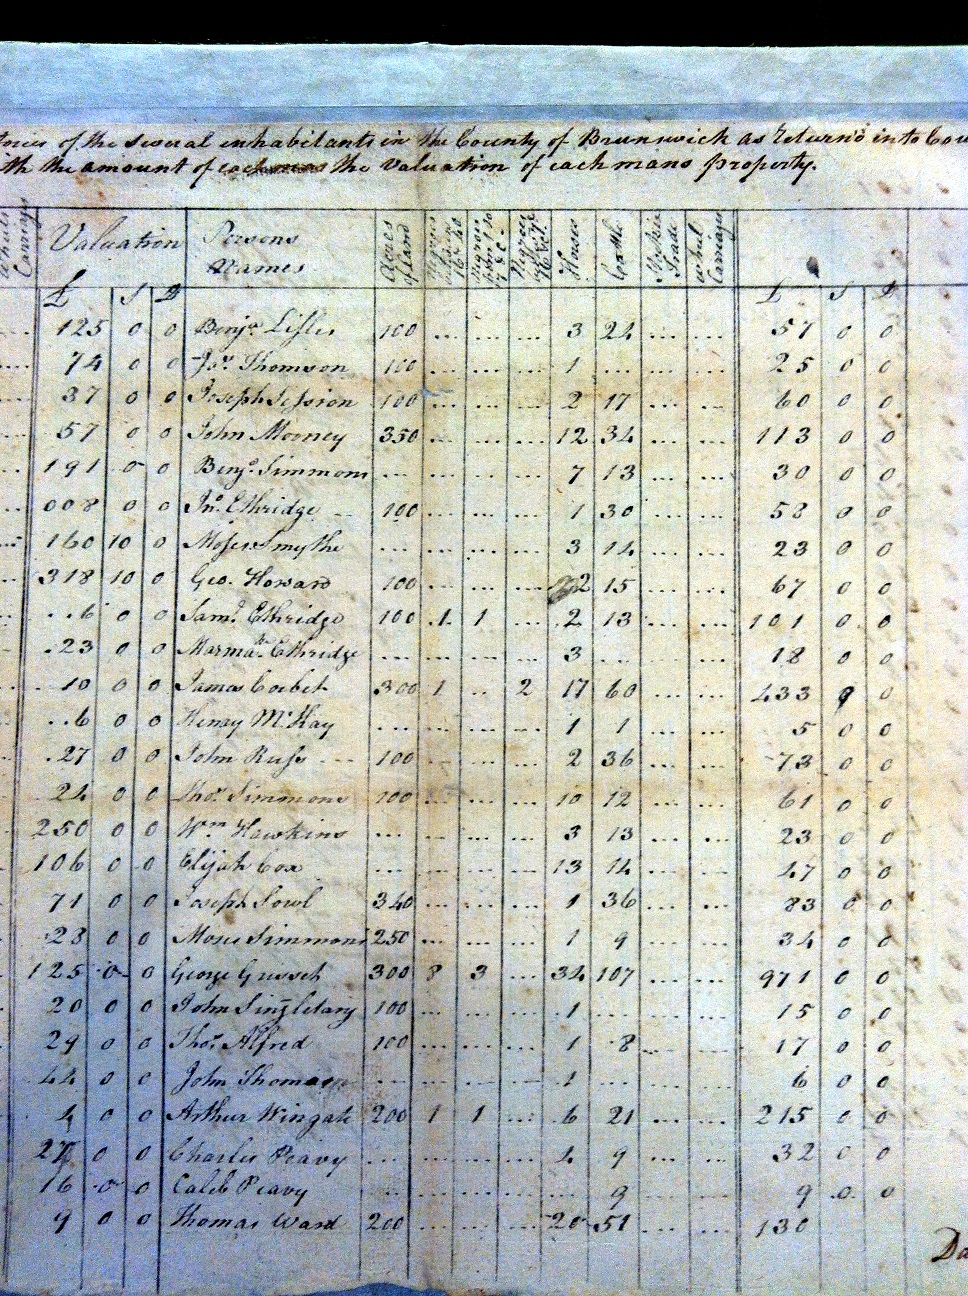 of the several inhabitants in the County of Brunswick as Return'd into
the amount of the Valuation of each mans property.
Wheels Carriages Valuation Persons Names Acres of Land Horses Cattle Stock in Trade wheel Carriages
£ S D £ S D
... 125 0 0 Benjn. Lisles 100 ... ... ... 3 24 ... ... 57 0 0
... 74 0 0 Jas. Thomson 100 ... ... ... 1 ... ... ... 25 0 0
... 37 0 0 Joseph Session 100 ... ... ... 2 17 ... ... 60 0 0
... 57 0 0 John Mooney 350 ... ... ... 12 34 ... ... 113 0 0
... 191 0 0 Benjn. Simmons ... ... ... ... 7 13 ... ... 30 0 0
... 008 0 0 Jno. Ethridge 100 ... ... ... 1 30 ... ... 58 0 0
... 160 10 0 Moses Smythe ... ... ... ... 3 14 ... ... 23 0 0
... 318 10 0 Geo. Howard 100 ... ... ... 2 15 ... ... 67 0 0
... ..6 0 0 Saml. Ethridge 100 .1. 1 ... 2 13 ... ... 101 0 0
... .23 0 0 Marmak. Ethridge ... ... ... ... 3 ... ... ... 18 0 0
... 10 0 0 James Corbet 300 1 .. 2 17 60 ... ... 433 0 0
... ..6 0 0 Henry McKay ... ... ... ... 1 1 ... ... 5 0 0
... .27 0 0 John Russ 100 ... ... ... 2 36 ... ... 73 0 0
... 24 0 0 Thos. Simmons 100 ... ... ... 10 12 ... ... 61 0 0
250 0 0 Wm Hawkins ... ... ... ... 3 13 ... ... 23 0 0
106 0 0 Elijah Cox ... ... ... ... 13 14 ... ... 47 0 0
71 0 0 Joseph Sowl 340 ... ... ... 1 36 ... ... 83 0 0
28 0 0 Moses Simmons 250 ... ... ... 1 9 ... ... 34 0 0
125 0 0 George Grisset 300 8 3 ... 34 107 ... ... 971 0 0
20 0 0 John Singletary 100 ... ... ... 1 ... ... ... 15 0 0
29 0 0 Thos. Alfred 100 ... ... ... 1 8 ... ... 17 0 0
44 0 0 John Thomson ... ... ... ... 1 ... ... ... 6 0 0
4 0 0 Arthur Wingate 200 1 1 ... 6 21 ... ... 215 0 0
27 0 0 Charles Peavy ... ... ... ... 4 9 ... ... 32 0 0
16 0 0 Caleb Peavy ... ... ... ... ... 9 ... ... 9 0 0
9 0 0 Thomas Ward 200 ... ... ... 20 51 ... ... 130